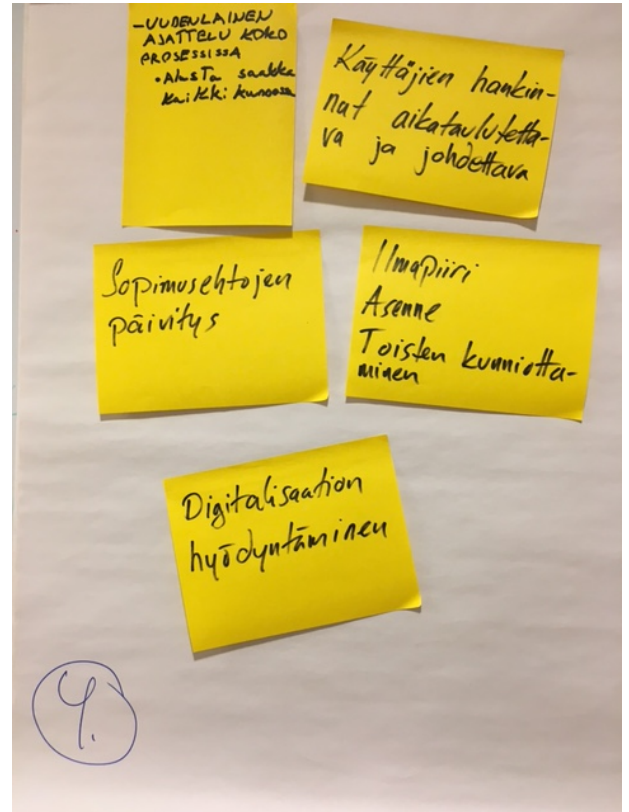 -UUDENLAINEN
AJATTELU KOKO
PROSESSISSA
• Alusta saakka
kaikki kunnossa
Käyttäjien hankin-
nat aikataulutetta-
va ja johdettava
Sopimusehtojen
päivitys
Ilmapiiri
Asenne
Toisten kunniotta-
minen
Digitalisaation
hyödyntäminen
4.